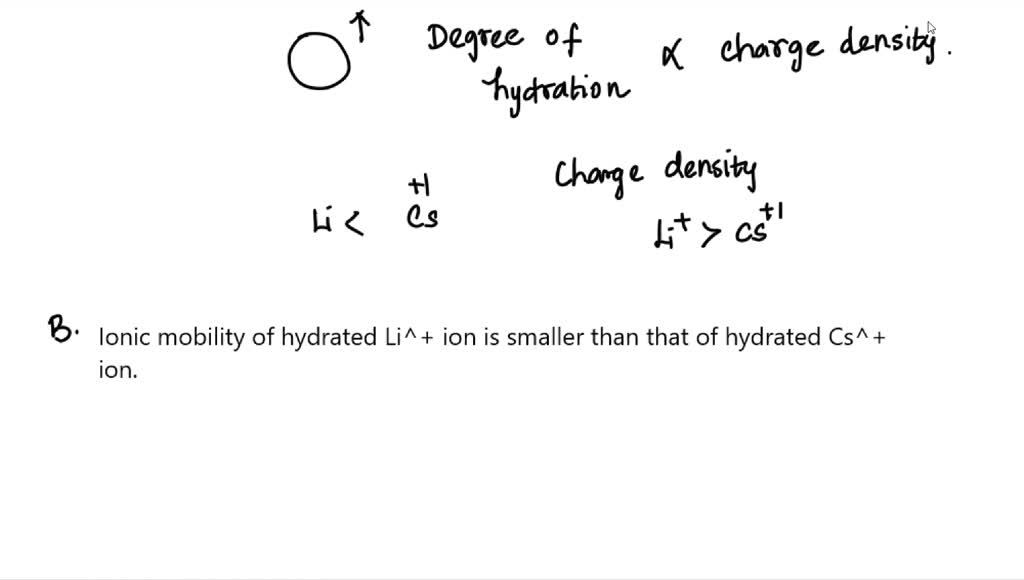 Degree of hydration ∝ charge density.
Charge density
Li < Cs+1
Li+ > Cs+1
B. Ionic mobility of hydrated Li^+ ion is smaller than that of hydrated Cs^+
ion.